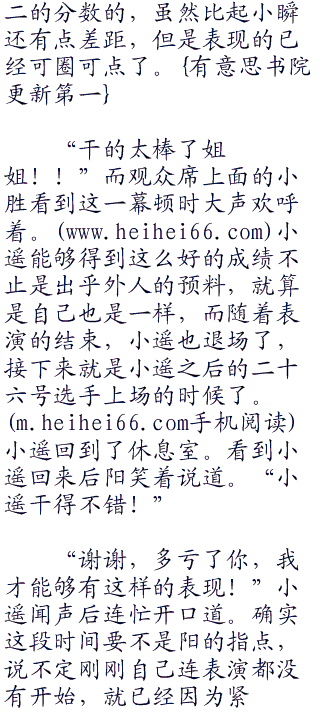 二的分数的，虽然比起小瞬
还有点差距，但是表现的已
经可圈可点了。{有意思书院
更新第一}
“干的太棒了姐
姐！！”而观众席上面的小
胜看到这一幕顿时大声欢呼
着。(www.heihei66.com)小
遥能够得到这么好的成绩不
止是出乎外人的预料，就算
是自己也是一样，而随着表
演的结束，小遥也退场了，
接下来就是小遥之后的二十
六号选手上场的时候了。
(m.heihei66.com手机阅读)
小遥回到了休息室。看到小
遥回来后阳笑着说道。“小
遥干得不错！”
“谢谢，多亏了你，我
才能够有这样的表现！”小
遥闻声后连忙开口道。确实
这段时间要不是阳的指点，
说不定刚刚自己连表演都没
有开始，就已经因为紧